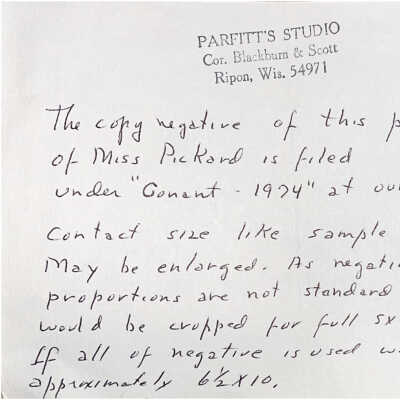 PARFITT'S STUDIO
Cor. Blackburn & Scott
Ripon, Wis. 54971
The copy negative of this p
of Miss Pickard is filed
under "Conant - 1974" at ou
Contact size like sample
May be enlarged. As negati
proportions are not standard
would be cropped for full 5x
If all of negative is used w
approximately 6½ x 10.